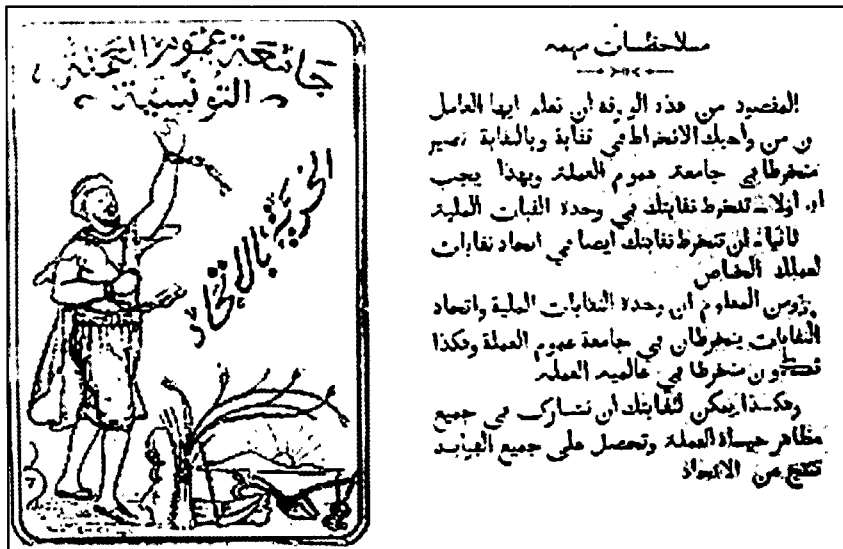 جامعة عموم العملة
التونسية
الحرية بالاتحاد
ملاحظات مهمه
المقصود من هذه الورقه ان تعلم ايها العامل
ن من واجبك الانخراط في نقابة وبالنقابة تصير
منخرطا في جامعة عموم العملة وبهذا يجب
اولا تنخرط نقابتك في وحدة النقابات الملية
ثانيا ان تنخرط نقابتك ايضا في اتحاد نقابات
لعملك الخاص
ومن المعلوم ان وحدة النقابات الملية واتحاد
النقابات ينخرطان في جامعة عموم العملة وهكذا
منخرطا في عالمية العملة
وهكذا يمكن لنقابتك ان تشارك في جميع
مظاهر حياة العملة وتحصل على جميع
تنتج من الاتحاد